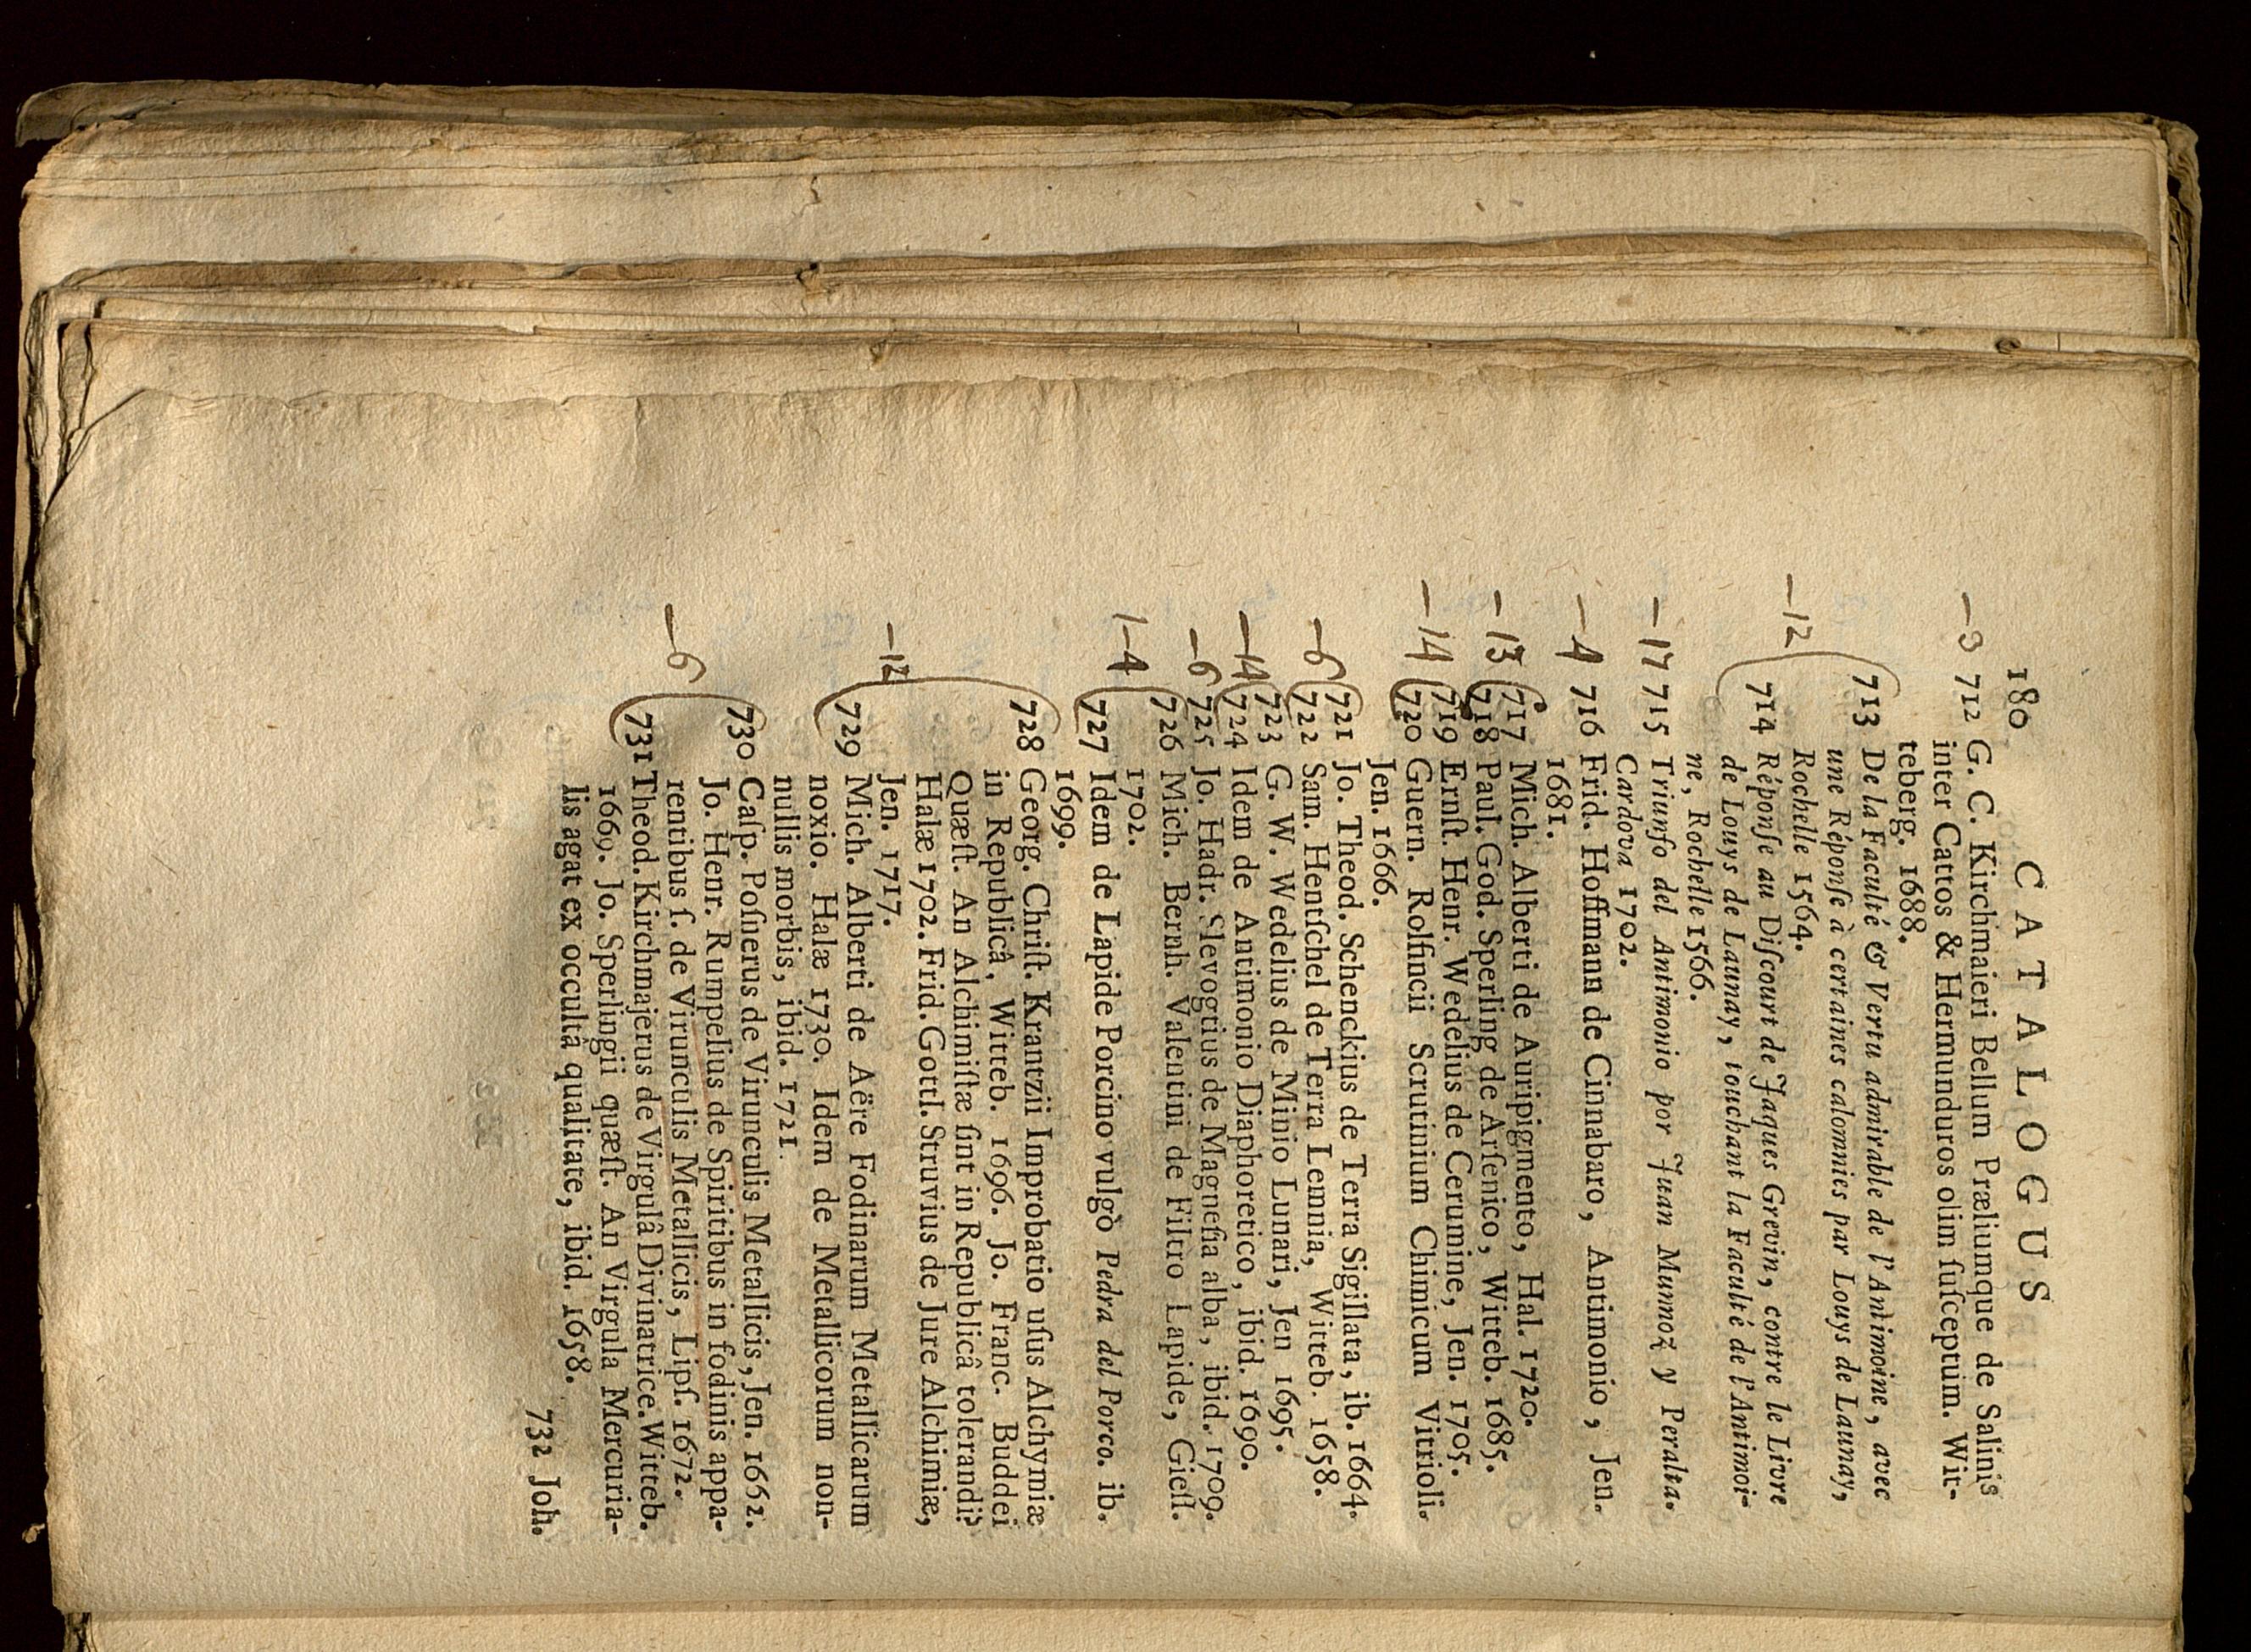 180 CATALOGUS
—3 712 G. C. Kirchmaieri Bellum Præliumque de Salinis
inter Cattos & Hermunduros olim ſuſceptum. Wit-
teberg. 1688.
713 De la Faculté & Vertu admirable de l'Antimoine, avec
une Réponſe à certaines calomnies par Louys de Launay,
Rochelle 1564.
—12
714 Réponſe au Diſcourt de Jaques Grevin, contre le Livre
de Louys de Launay, touchant la Faculté de l'Antimoi-
ne, Rochelle 1566.
—17 715 Triunfo del Antimonio por Juan Munnoz y Peralta.
Cardova 1702.
—4 716 Frid. Hoffmann de Cinnabaro, Antimonio, Jen.
1681.
717 Mich. Alberti de Auripigmento, Hal. 1720.
—13
718 Paul. God. Sperling de Arſenico, Witteb. 1685.
719 Ernſt. Henr. Wedelius de Cerumine, Jen. 1705.
—14
720 Guern. Rolfincii Scrutinium Chimicum Vitrioli.
Jen. 1666.
721 Jo. Theod. Schenckius de Terra Sigillata, ib. 1664.
—6
722 Sam. Hentſchel de Terra Lemnia, Witteb. 1658.
723 G. W. Wedelius de Minio Lunari, Jen 1695.
—14
724 Idem de Antimonio Diaphoretico, ibid. 1690.
—6 725 Jo. Hadr. Slevogtius de Magneſia alba, ibid. 1709.
726 Mich. Bernh. Valentini de Filtro Lapide, Gieſſ.
1702.
1—4
727 Idem de Lapide Porcino vulgò Pedra del Porco. ib.
1699.
728 Georg. Chriſt. Krantzii Improbatio uſus Alchymiæ
in Republicâ, Witteb. 1696. Jo. Franc. Buddei
Quæſt. An Alchimiſtæ ſint in Republicâ tolerandi?
Halæ 1702. Frid. Gottl. Struvius de Jure Alchimiæ,
Jen. 1717.
—12
729 Mich. Alberti de Aëre Fodinarum Metallicarum
noxio. Halæ 1730. Idem de Metallicorum non-
nullis morbis, ibid. 1721.
730 Caſp. Poſnerus de Virunculis Metallicis, Jen. 1662.
Jo. Henr. Rumpelius de Spiritibus in fodinis appa-
rentibus ſ. de Virunculis Metallicis, Lipſ. 1672.
—6
731 Theod. Kirchmajerus de Virgulâ Divinatrice. Witteb.
1669. Jo. Sperlingii quæſt. An Virgula Mercuria-
lis agat ex occultâ qualitate, ibid. 1658.
732 Joh.